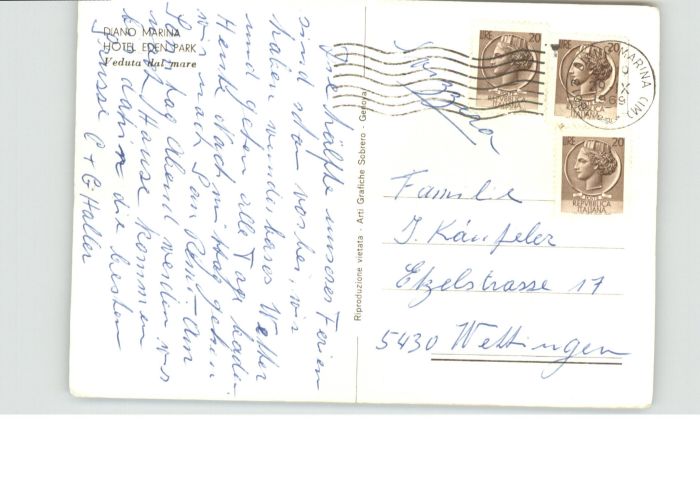 DIANO MARINA
HOTEL EDEN PARK
Veduta dal mare
Die hälfte unserer Ferien
sind schon vorbei, wir
haben wunderbares Wetter
und gehen alle Tage baden
Heute Nachmittag gehen
wir nach San Remo. Am
Samstag Abend werden wir
nach Hause kommen
bis dahin die besten
Grüsse C + G. Haller
Riproduzione vietata - Arti Grafiche Sobrero - Genova
Svizzera
LIRE 20
REPVBBLICA
ITALIANA
LIRE 20
REPVBBLICA
ITALIANA
20
REPVBBLICA
ITALIANA
MARINA (IM)
X
69
Familie
J. Käufeler
Etzelstrasse 17
5430 Wettingen